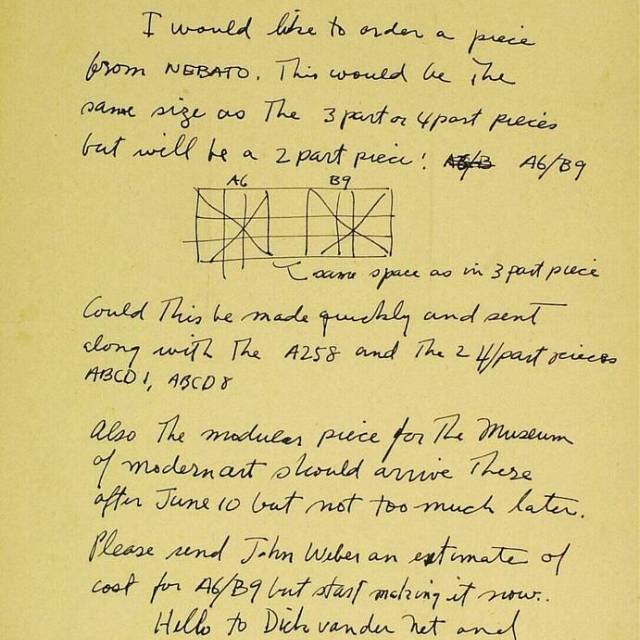 I would like to order a piece
from NEBATO. This would be the
same size as the 3 part or 4 part pieces
but will be a 2 part piece! A6/B A6/B9
A6 B9
same space as in 3 part piece
Could this be made quickly and sent
along with the A258 and the 2 4/part pieces
ABCD 1, ABCD 8
Also the modular piece for the Museum
of modern art should arrive there
after June 10 but not too much later.
Please send John Weber an estimate of
cost for A6/B9 but start making it now..
Hello to Dick vander Net and